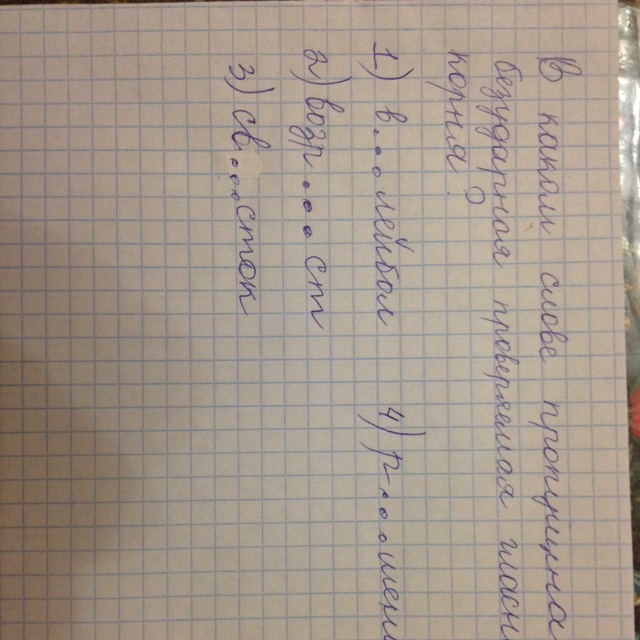 В каком слове пропущена
безударная проверяемая гласн
корня?
1) в...лейбол 4) р...мень
2) возр...ст
3) св...сток